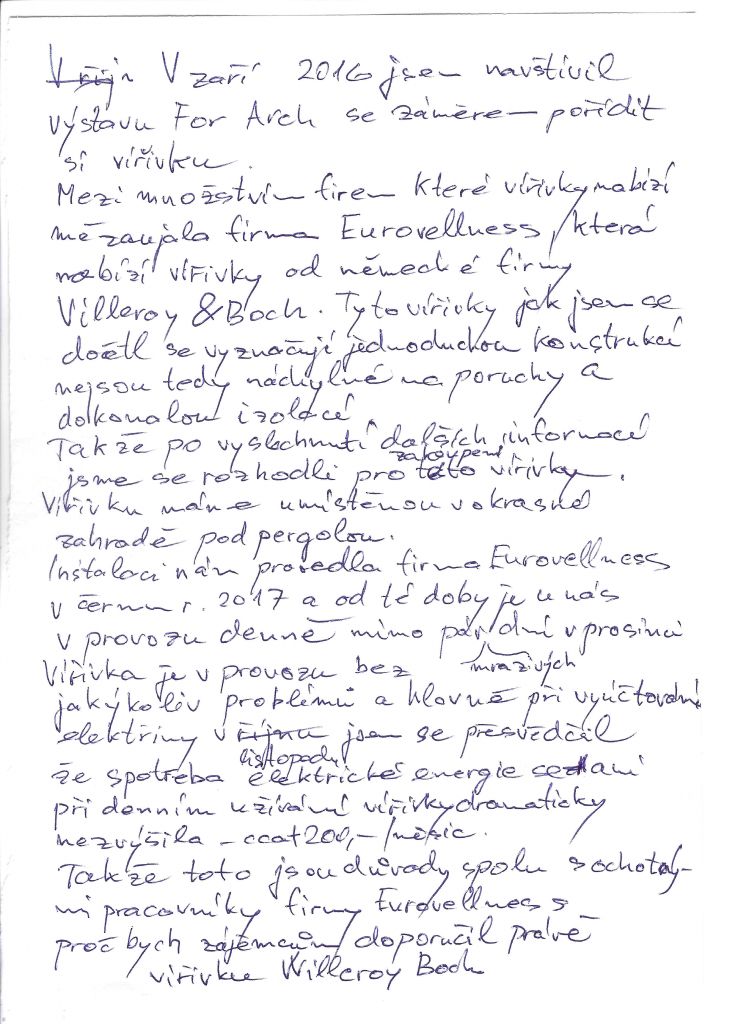 V říj V září 2016 jsem navštívil
výstavu For Arch se záměrem pořídit
si vířivku.
Mezi množstvím firem které vířivky nabízí
mě zaujala firma Eurovellness, která
nabízí vířivky od německé firmy
Villeroy & Boch. Tyto vířivky jak jsem se
dočtl se vyznačují jednoduchou konstrukcí
nejsou tedy náchylné na poruchy a
dokonalou izolací.
Takže po vyslechnutí dalších informací
zakoupení
jsme se rozhodli pro této vířivky.
Vířivku máme umístěnou v okrasné
zahradě pod pergolou.
Instalaci nám provedla firma Eurovellness
v červnu r. 2017 a od té doby je u nás
v provozu denně mimo pár dní v prosinci
mrazivých
Vířivka je v provozu bez
jakýkoliv problémů a hlavně při vyúčtování
elektřiny v říjnu jsem se přesvědčil
listopadu
že spotřeba elektrické energie se ani
při denním užívání vířivky dramaticky
nezvýšila - cca 200,-/měsíc.
Takže toto jsou důvody spolu s ochotný-
mi pracovníky firmy Eurovellness
proč bych zájemcům doporučil právě
vířivku Willeroy Boch